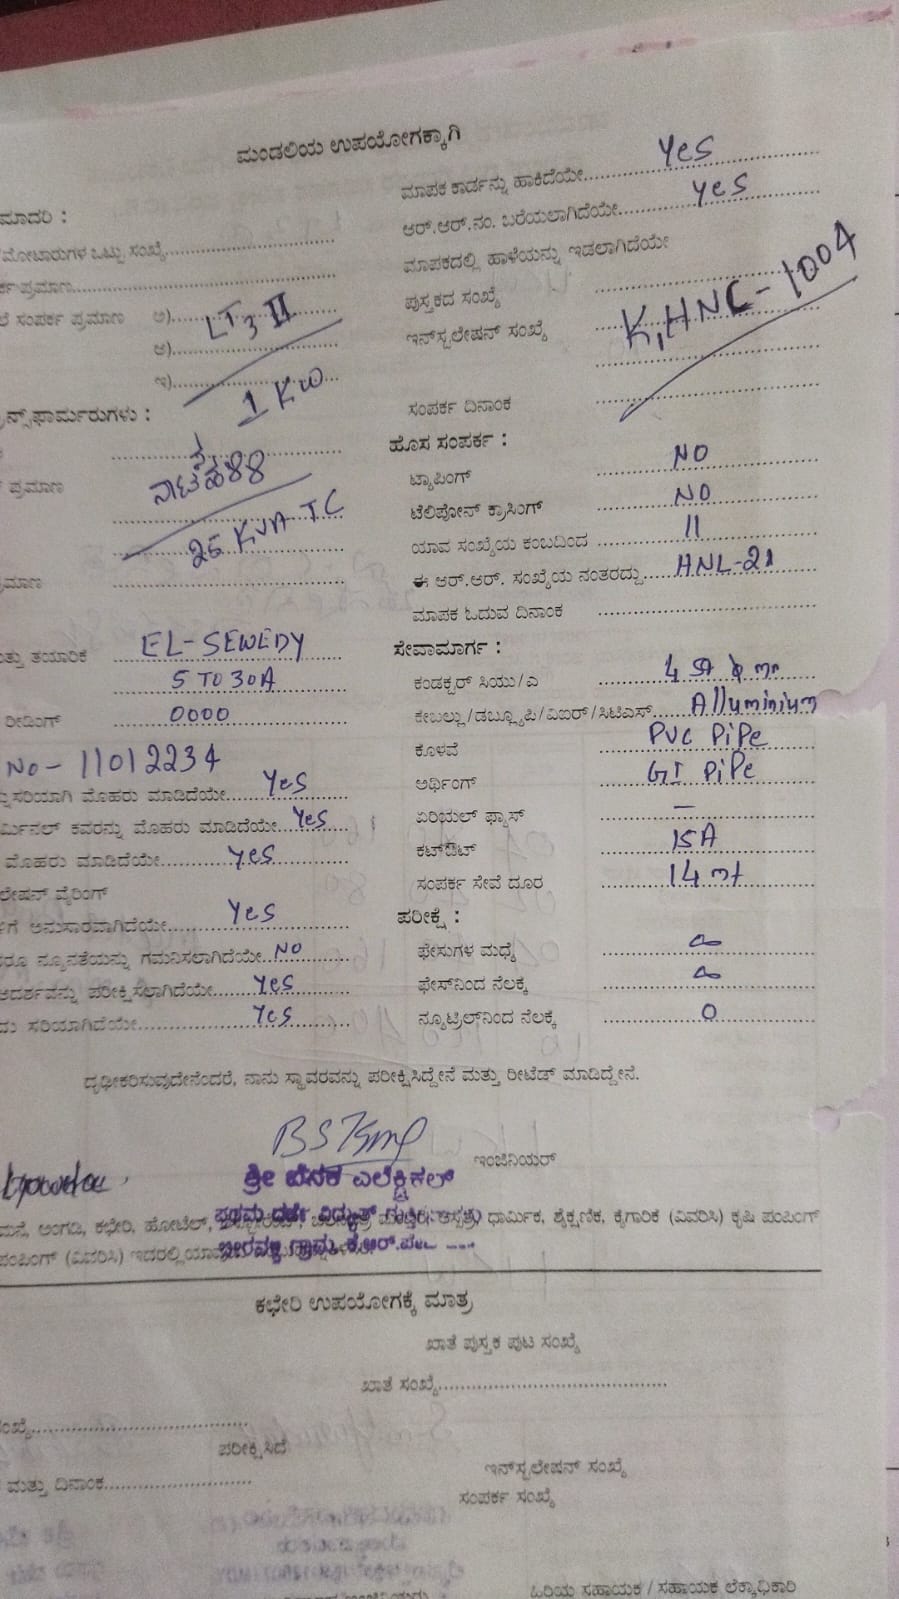 ಮಂಡಲಿಯ ಉಪಯೋಗಕ್ಕಾಗಿ
ಮಾದರಿ :
ಮೋಟಾರುಗಳ ಒಟ್ಟು ಸಂಖ್ಯೆ
ಪ್ರಮಾಣ
ಸಂಪರ್ಕ ಪ್ರಮಾಣ ಅ) LT3 II
ಆ)
ಇ)
1 KW
ಫಾರ್ಮರುಗಳು :
ಪ್ರಮಾಣ
25 KVA TC
ಮಾಣ
ತಯಾರಿಕೆ EL-SEWEDY
5 TO 30A
ರೀಡಿಂಗ್ 0000
No - 11012234
ಸರಿಯಾಗಿ ಮೊಹರು ಮಾಡಿದೆಯೇ Yes
ಕವರನ್ನು ಮೊಹರು ಮಾಡಿದೆಯೇ Yes
ಮೊಹರು ಮಾಡಿದೆಯೇ Yes
ಲೇಷನ್ ವೈರಿಂಗ್
ಅನುಸಾರವಾಗಿದೆಯೇ Yes
ನ್ಯೂನತೆಯನ್ನು ಗಮನಿಸಲಾಗಿದೆಯೇ NO
ಆದರ್ಶವನ್ನು ಪರೀಕ್ಷಿಸಲಾಗಿದೆಯೇ Yes
ಸರಿಯಾಗಿದೆಯೇ Yes
ಮಾಪಕ ಕಾರ್ಡನ್ನು ಹಾಕಿದೆಯೇ Yes
ಆರ್.ಆರ್.ನಂ. ಬರೆಯಲಾಗಿದೆಯೇ yes
ಮಾಪಕದಲ್ಲಿ ಹಾಳೆಯನ್ನು ಇಡಲಾಗಿದೆಯೇ
ಪುಸ್ತಕದ ಸಂಖ್ಯೆ
ಇನ್‌ಸ್ಟಲೇಷನ್ ಸಂಖ್ಯೆ K,HNL-1004
ಸಂಪರ್ಕ ದಿನಾಂಕ
ಹೊಸ ಸಂಪರ್ಕ :
ಟ್ಯಾಪಿಂಗ್ NO
ಟೆಲಿಪೋನ್ ಕ್ರಾಸಿಂಗ್ NO
ಯಾವ ಸಂಖ್ಯೆಯ ಕಂಬದಿಂದ 11
ಈ ಆರ್.ಆರ್. ಸಂಖ್ಯೆಯ ನಂತರದ್ದು HNL-21
ಮಾಪಕ ಓದುವ ದಿನಾಂಕ
ಸೇವಾಮಾರ್ಗ :
ಕಂಡಕ್ಟರ್ ಸಿಯು/ಎ
ಕೇಬಲ್ಲು/ಡಬ್ಲ್ಯೂಪಿ/ವಿಐಆರ್/ಸಿಟಿಎಸ್ Alluminium
ಕೊಳವೆ PVC PiPe
ಅರ್ಥಿಂಗ್ GI PiPe
ಏರಿಯಲ್ ಫ್ಯೂಸ್ —
ಕಟ್‌ಔಟ್ 15A
ಸಂಪರ್ಕ ಸೇವೆ ದೂರ 14 mt
ಪರೀಕ್ಷೆ :
ಫೇಸುಗಳ ಮಧ್ಯೆ ∞
ಫೇಸ್‌ನಿಂದ ನೆಲಕ್ಕೆ ∞
ನ್ಯೂಟ್ರಿಲ್‌ನಿಂದ ನೆಲಕ್ಕೆ 0
ದೃಢೀಕರಿಸುವುದೇನೆಂದರೆ, ನಾನು ಸ್ಥಾವರವನ್ನು ಪರೀಕ್ಷಿಸಿದ್ದೇನೆ ಮತ್ತು ರೀಟೆಡ್ ಮಾಡಿದ್ದೇನೆ.
ಇಂಜಿನಿಯರ್
ಶ್ರೀ ಬೆನಕ ಎಲೆಕ್ಟ್ರಿಕಲ್
ಪ್ರಥಮ ದರ್ಜೆ ವಿದ್ಯುತ್
ಮನೆ, ಅಂಗಡಿ, ಕಛೇರಿ, ಹೋಟೆಲ್, ಧಾರ್ಮಿಕ, ಶೈಕ್ಷಣಿಕ, ಕೈಗಾರಿಕೆ (ವಿವರಿಸಿ) ಕೃಷಿ ಪಂಪಿಂಗ್
ಪಂಪಿಂಗ್ (ವಿವರಿಸಿ)
ಕಛೇರಿ ಉಪಯೋಗಕ್ಕೆ ಮಾತ್ರ
ಖಾತೆ ಪುಸ್ತಕ ಪುಟ ಸಂಖ್ಯೆ
ಖಾತೆ ಸಂಖ್ಯೆ
ಪರೀಕ್ಷಿಸಿದೆ
ಮತ್ತು ದಿನಾಂಕ
ಇನ್‌ಸ್ಟಲೇಷನ್ ಸಂಖ್ಯೆ
ಸಂಪರ್ಕ ಸಂಖ್ಯೆ
ಹಿರಿಯ ಸಹಾಯಕ / ಸಹಾಯಕ ಲೆಕ್ಕಾಧಿಕಾರಿ